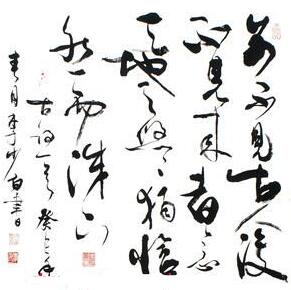 前不見古後
不見來者念
天地之悠悠獨愴
然而涕下
古詩一首癸巳年
春月李少白書